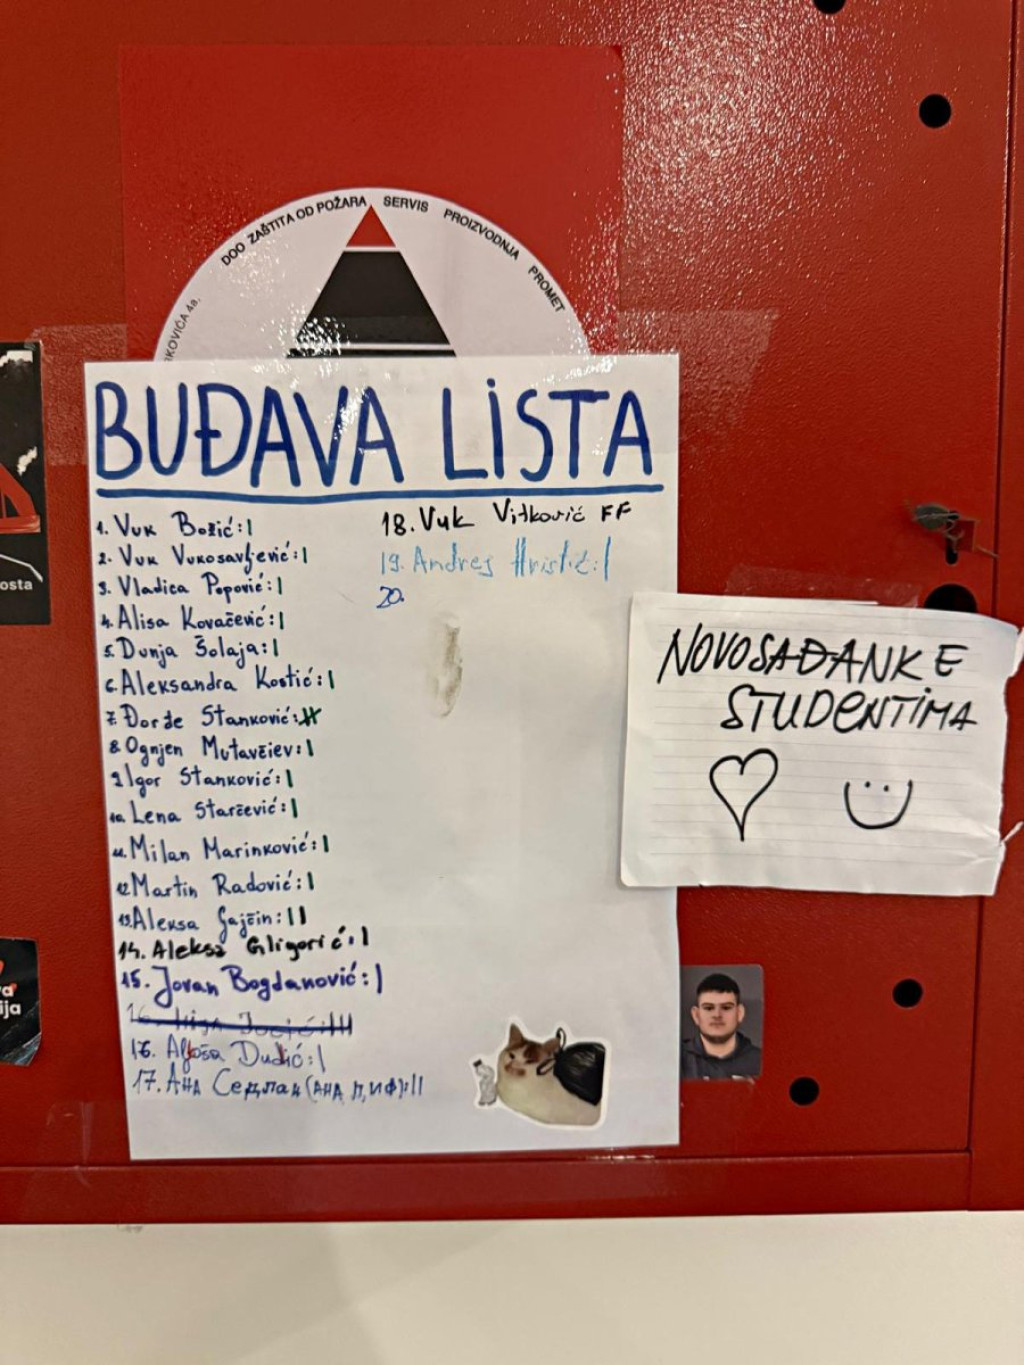 DOO ZAŠTITA OD POŽARA SERVIS PROIZVODNJA PROMET
KOVIĆA 4a.
BUĐAVA LISTA
1. Vuk Božić: |
2. Vuk Vukosavljević: |
3. Vladica Popović: |
4. Alisa Kovačević: |
5. Dunja Šolaja: |
6. Aleksandra Kostić: |
7. Đorđe Stanković:
8. Ognjen Mutavčiev: |
9. Igor Stanković: |
10. Lena Starčević: |
11. Milan Marinković: |
12. Martin Radović: |
13. Aleksa Gajčin: ||
14. Aleksa Gligorić: |
15. Jovan Bogdanović: |
16.
16. Aljoša Dudić: |
17. Ана Седлак (АНА П, ИФ): ||
18. Vuk Vitković FF
19. Andrej Hristić: |
20.
NOVOSAĐANKE
STUDENTIMA
osta
ija